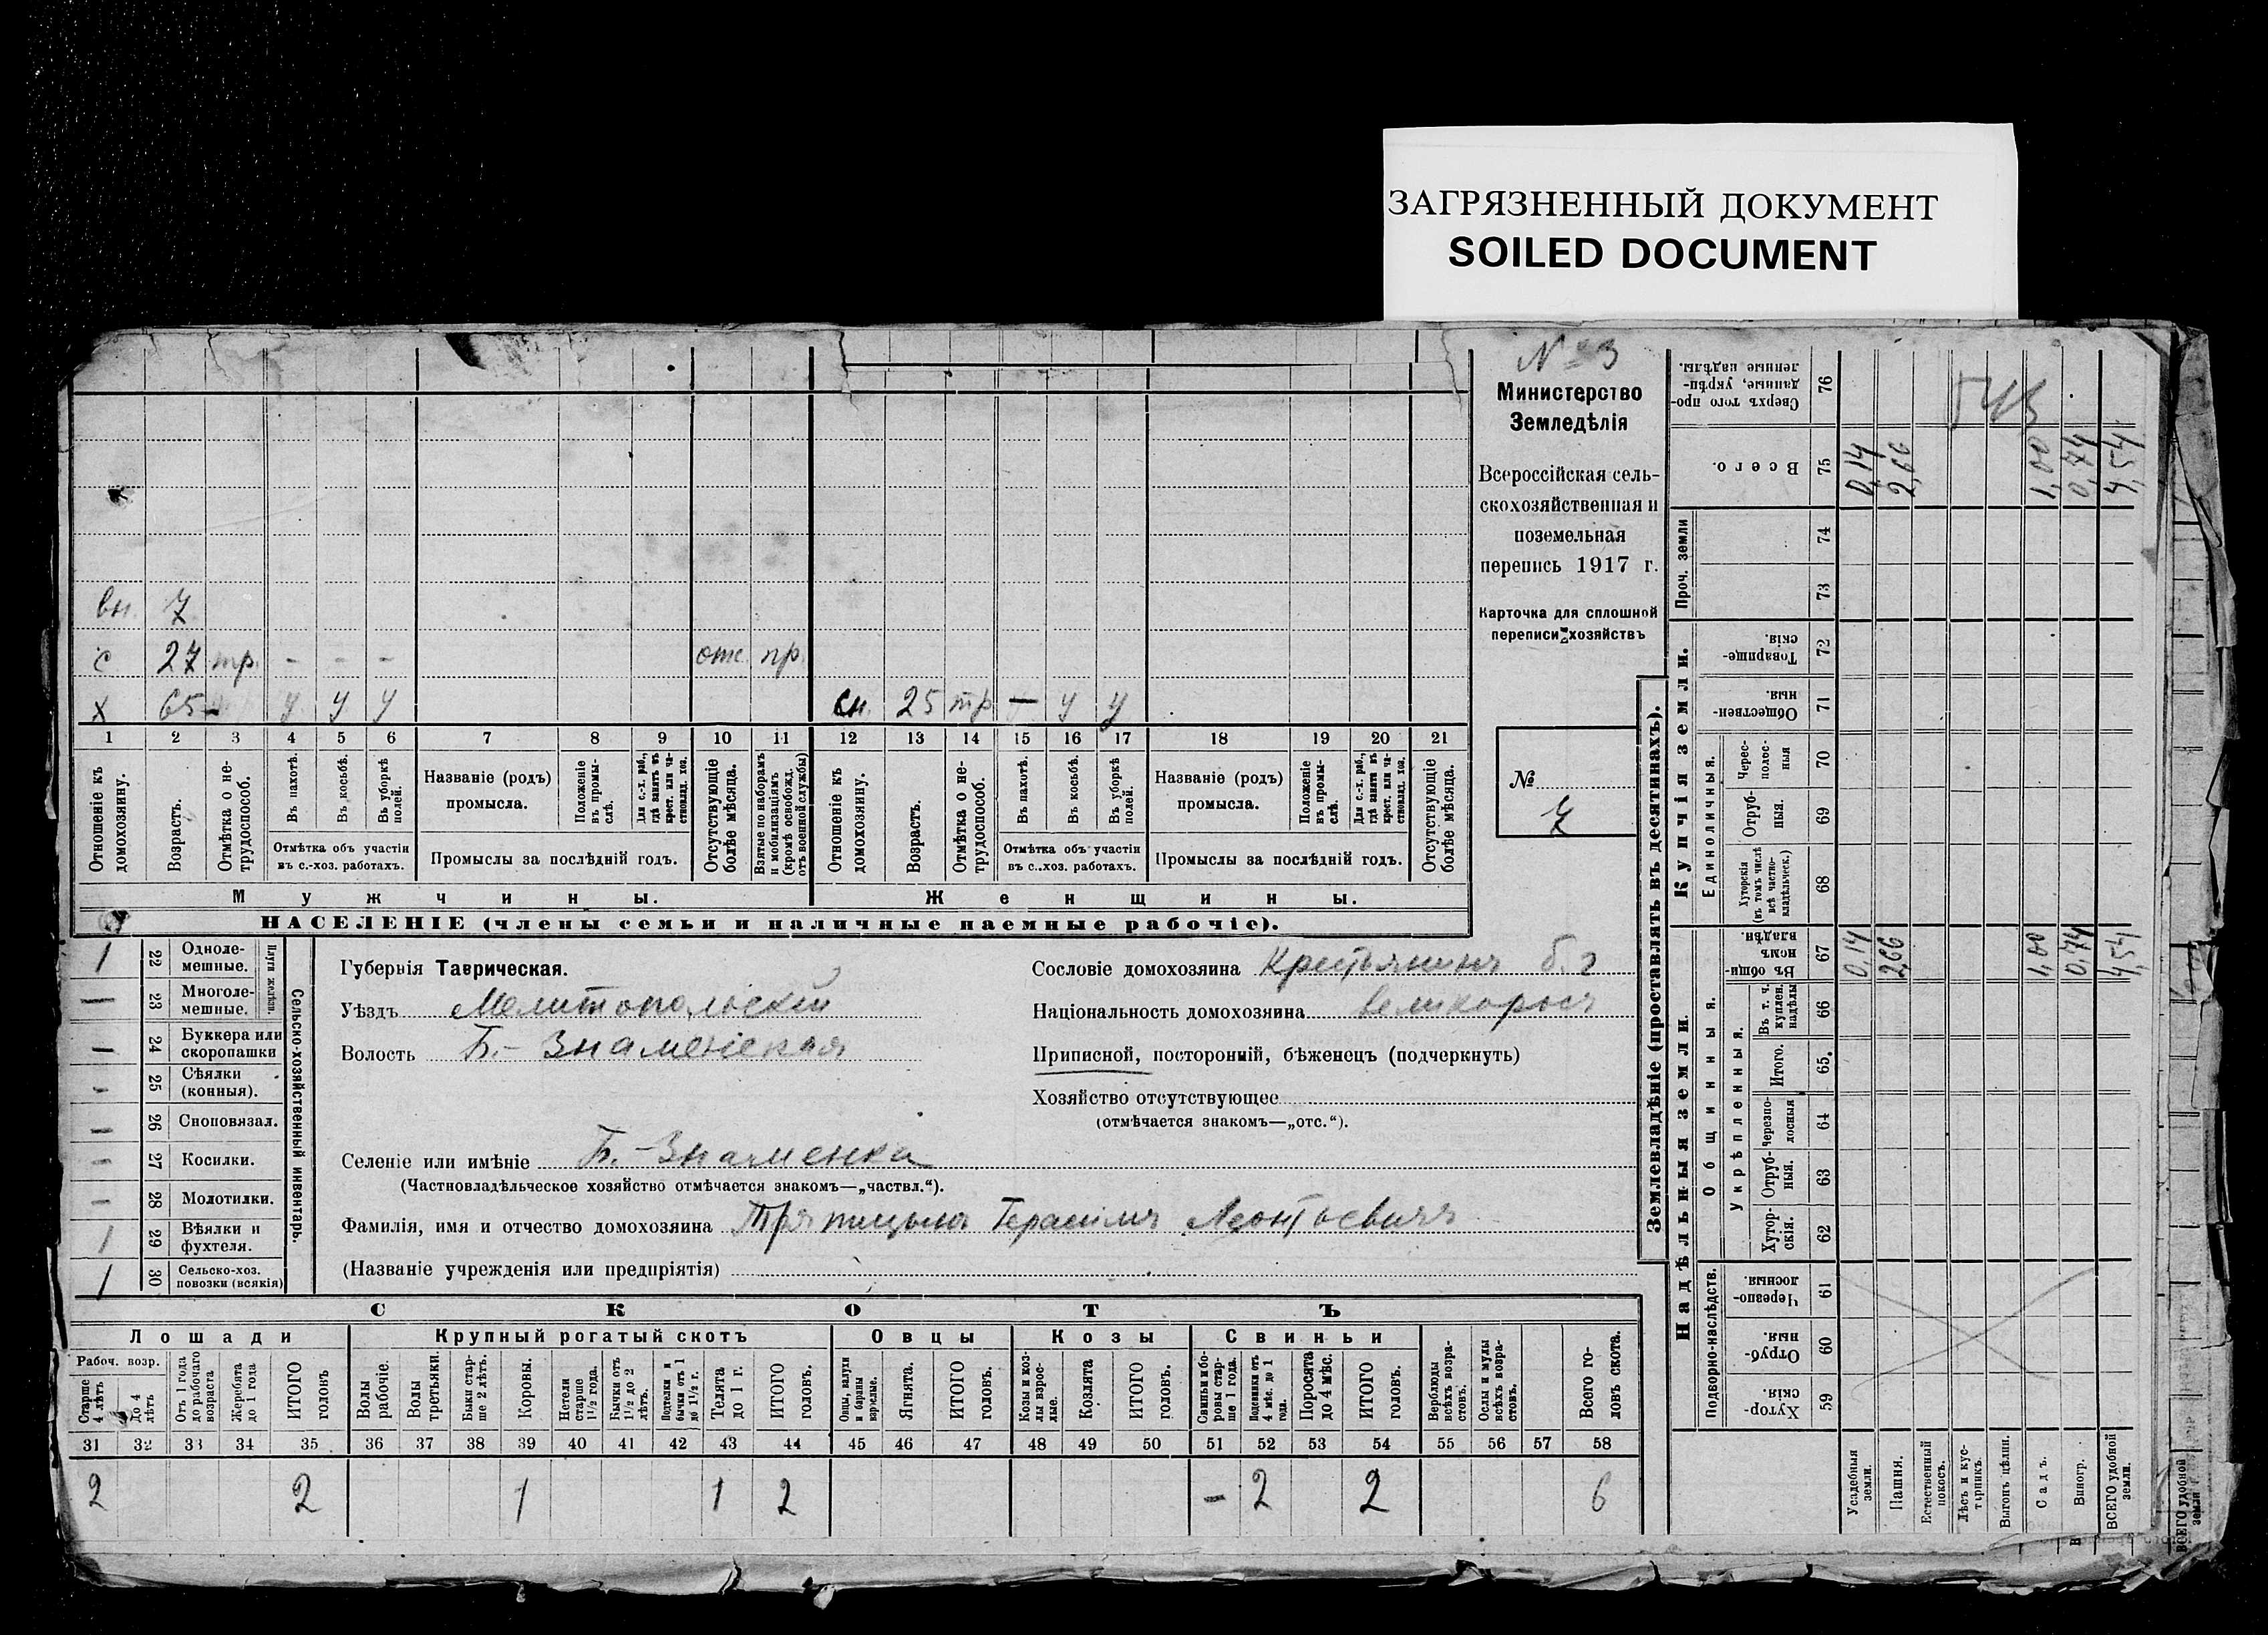 ЗАГРЯЗНЕННЫЙ ДОКУМЕНТ
SOILED DOCUMENT
№ 3
Министерство
Земледѣлія
Всероссійская сель-
скохозяйственная и
поземельная
перепись 1917 г.
Карточка для сплошной
переписи хозяйствъ
№
7
вн. 7
с 27 тр. - - - отс. пр.
х 65 - у у у сн. 25 тр - у у
1 2 3 4 5 6 7 8 9 10 11 12 13 14 15 16 17 18 19 20 21
Отношеніе къ домохозяину.
Возрастъ.
Отмѣтка о не-трудоспособ.
Въ пахотѣ.
Въ косьбѣ.
Въ уборкѣ полей.
Отмѣтка объ участіи
въ с.-хоз. работахъ.
Названіе (родъ)
промысла.
Положеніе въ промы-слѣ.
Для с.-х. раб., гдѣ занятъ въ крест. или ча-стновлад. хоз.
Промыслы за послѣдній годъ.
Отсутствующіе болѣе мѣсяца.
Взятые по наборамъ и мобилизаціямъ (кромѣ освобожд. отъ военной службы)
Отношеніе къ домохозяину.
Возрастъ.
Отмѣтка о не-трудоспособ.
Въ пахотѣ.
Въ косьбѣ.
Въ уборкѣ полей.
Отмѣтка объ участіи
въ с.-хоз. работахъ.
Названіе (родъ)
промысла.
Положеніе въ промы-слѣ.
Для с.-х. раб., гдѣ занята въ крест. или ча-стновлад. хоз.
Промыслы за послѣдній годъ.
Отсутствующіе болѣе мѣсяца.
Мужчины. Женщины.
НАСЕЛЕНІЕ (члены семьи и наличные наемные рабочіе).
Сельско-хозяйственный инвентарь.
Плуги желѣзн.
1 22 Одноле-мешные.
— 23 Многоле-мешные.
— 24 Буккера или скоропашки
- 25 Сѣялки (конныя).
— 26 Сноповязал.
- 27 Косилки.
- 28 Молотилки.
1 29 Вѣялки и фухтеля.
1 30 Сельско-хоз. повозки (всякія)
Губернія Таврическая.
Уѣздъ Мелитопольскій
Волость Б.- Знаменская
Сословіе домохозяина Крестьянинъ б. г
Національность домохозяина великороссъ
Приписной, посторонній, бѣженецъ (подчеркнуть)
Хозяйство отсутствующее
(отмѣчается знакомъ—„отс.“).
Селеніе или имѣніе Б.- Знаменка
(Частновладѣльческое хозяйство отмѣчается знакомъ—„частвл.“).
Фамилія, имя и отчество домохозяина Тряпицынъ Герасимъ Леонтьевичъ
(Названіе учрежденія или предпріятія)
СКОТЪ
Лошади Крупный рогатый скотъ Овцы Козы Свиньи
Рабоч. возр.
Старше 4 лѣтъ
До 4 лѣтъ
Отъ 1 года до рабочаго возраста
Жеребята до 1 года
ИТОГО головъ
Волы рабочіе.
Волы третьяки.
Быки стар-ше 2 лѣтъ.
Коровы.
Нетели старше 1½ года.
Бычки отъ 1½ до 2 лѣтъ.
Подтелки и бычки отъ 1 до 1½ г.
Телята до 1 г.
ИТОГО головъ.
Овцы, валухи и бараны взрослые.
Ягнята.
ИТОГО головъ.
Козы и коз-лы взрос-лые.
Козлята
ИТОГО головъ.
Свиньи и бо-ровы стар-ше 1 года.
Подсвинки отъ 4 мѣс. до 1 года.
Поросята до 4 мѣс.
ИТОГО головъ.
Верблюды всѣхъ возра-стовъ.
Ослы и мулы всѣхъ возра-стовъ.
Всего го-ловъ скота.
31 32 33 34 35 36 37 38 39 40 41 42 43 44 45 46 47 48 49 50 51 52 53 54 55 56 57 58
2 2 1 1 2 - 2 2 6
Землевладѣніе (проставлять въ десятинахъ).
Надѣльныя земли. Купчія земли. Проч. земли
Подворно-наслѣдств.
Общинныя.
Укрѣпленныя.
Единоличныя.
Хутор-скія. 59
Отруб-ныя. 60
Черезпо-лосныя. 61
Хутор-скія. 62
Отруб-ныя. 63
Черезпо-лосныя 64
Итого. 65.
Въ т. ч. куплен. надѣлы 66
Въ общи-номъ владѣн. 67
Хуторскія (въ томъ числѣ всѣ частно-владѣльческ.) 68
Отруб-ныя. 69
Черес-полос-ныя 70
Обществен-ныя. 71
Товарище-скія. 72
73
74
Всего. 75
Сверхъ того про-данные, укрѣп-ленные надѣлы. 76
Усадебныя земли. 0,14 0,14
Пашня. 2,66 2,66
Естественный покосъ.
Лѣсъ и кус-тарникъ.
Выгонъ цѣлин.
Садъ. 1,00 1,00
Виногр. 0,74 0,74
ВСЕГО удобной земли. 4,54 4,54
543
ВСЕГО удобной земли